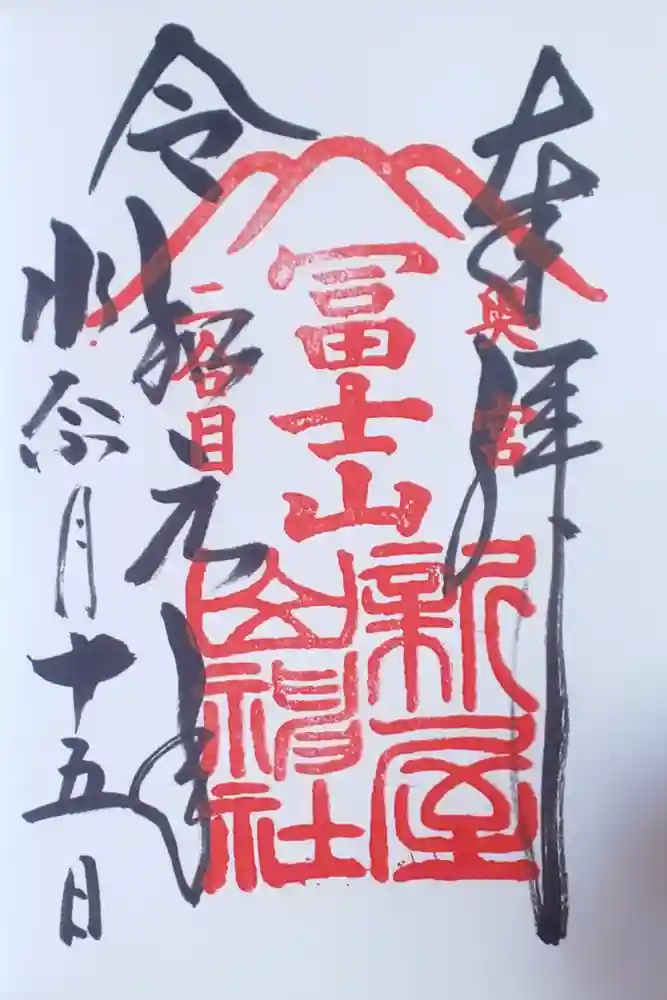 奉拝
奥宮
富士山
新屋
山神社
二合目
令和元年
水奈月十五日